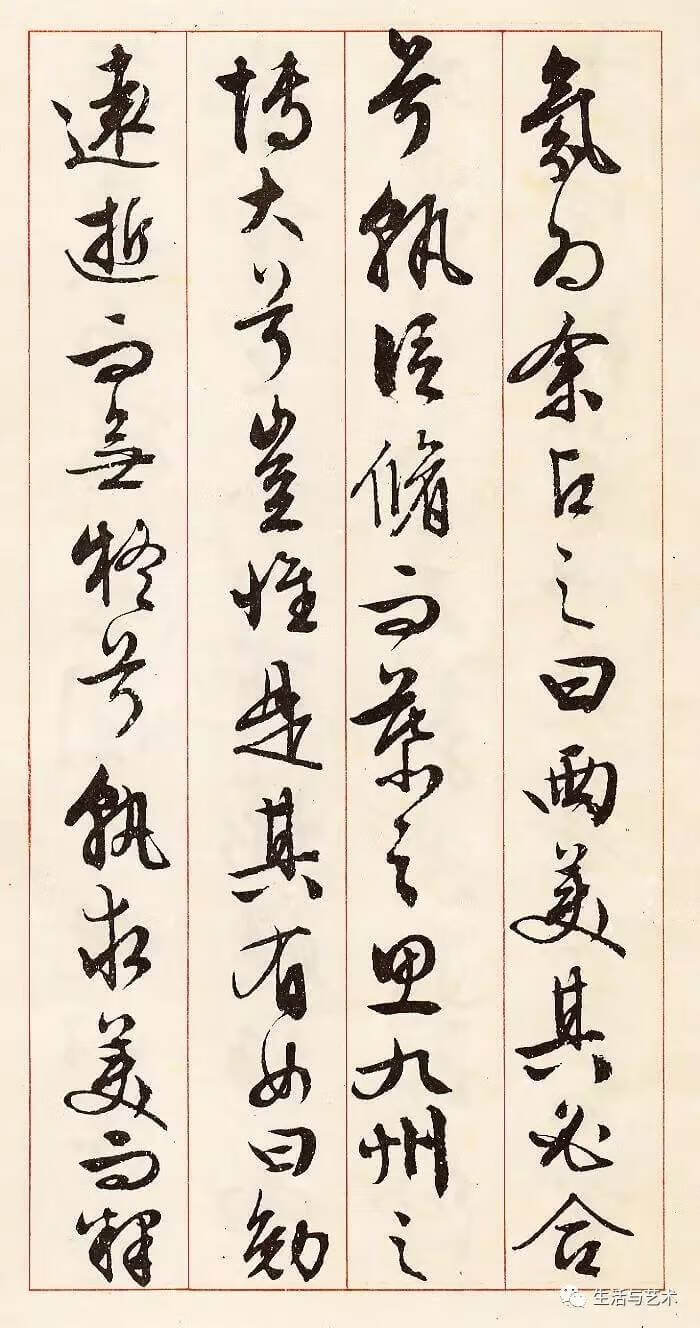 氛为余占之曰两美其必合
兮孰信脩而慕之思九州之
博大兮岂惟是其有女曰勉
远逝而無狐疑兮孰求美而释
生活与艺术